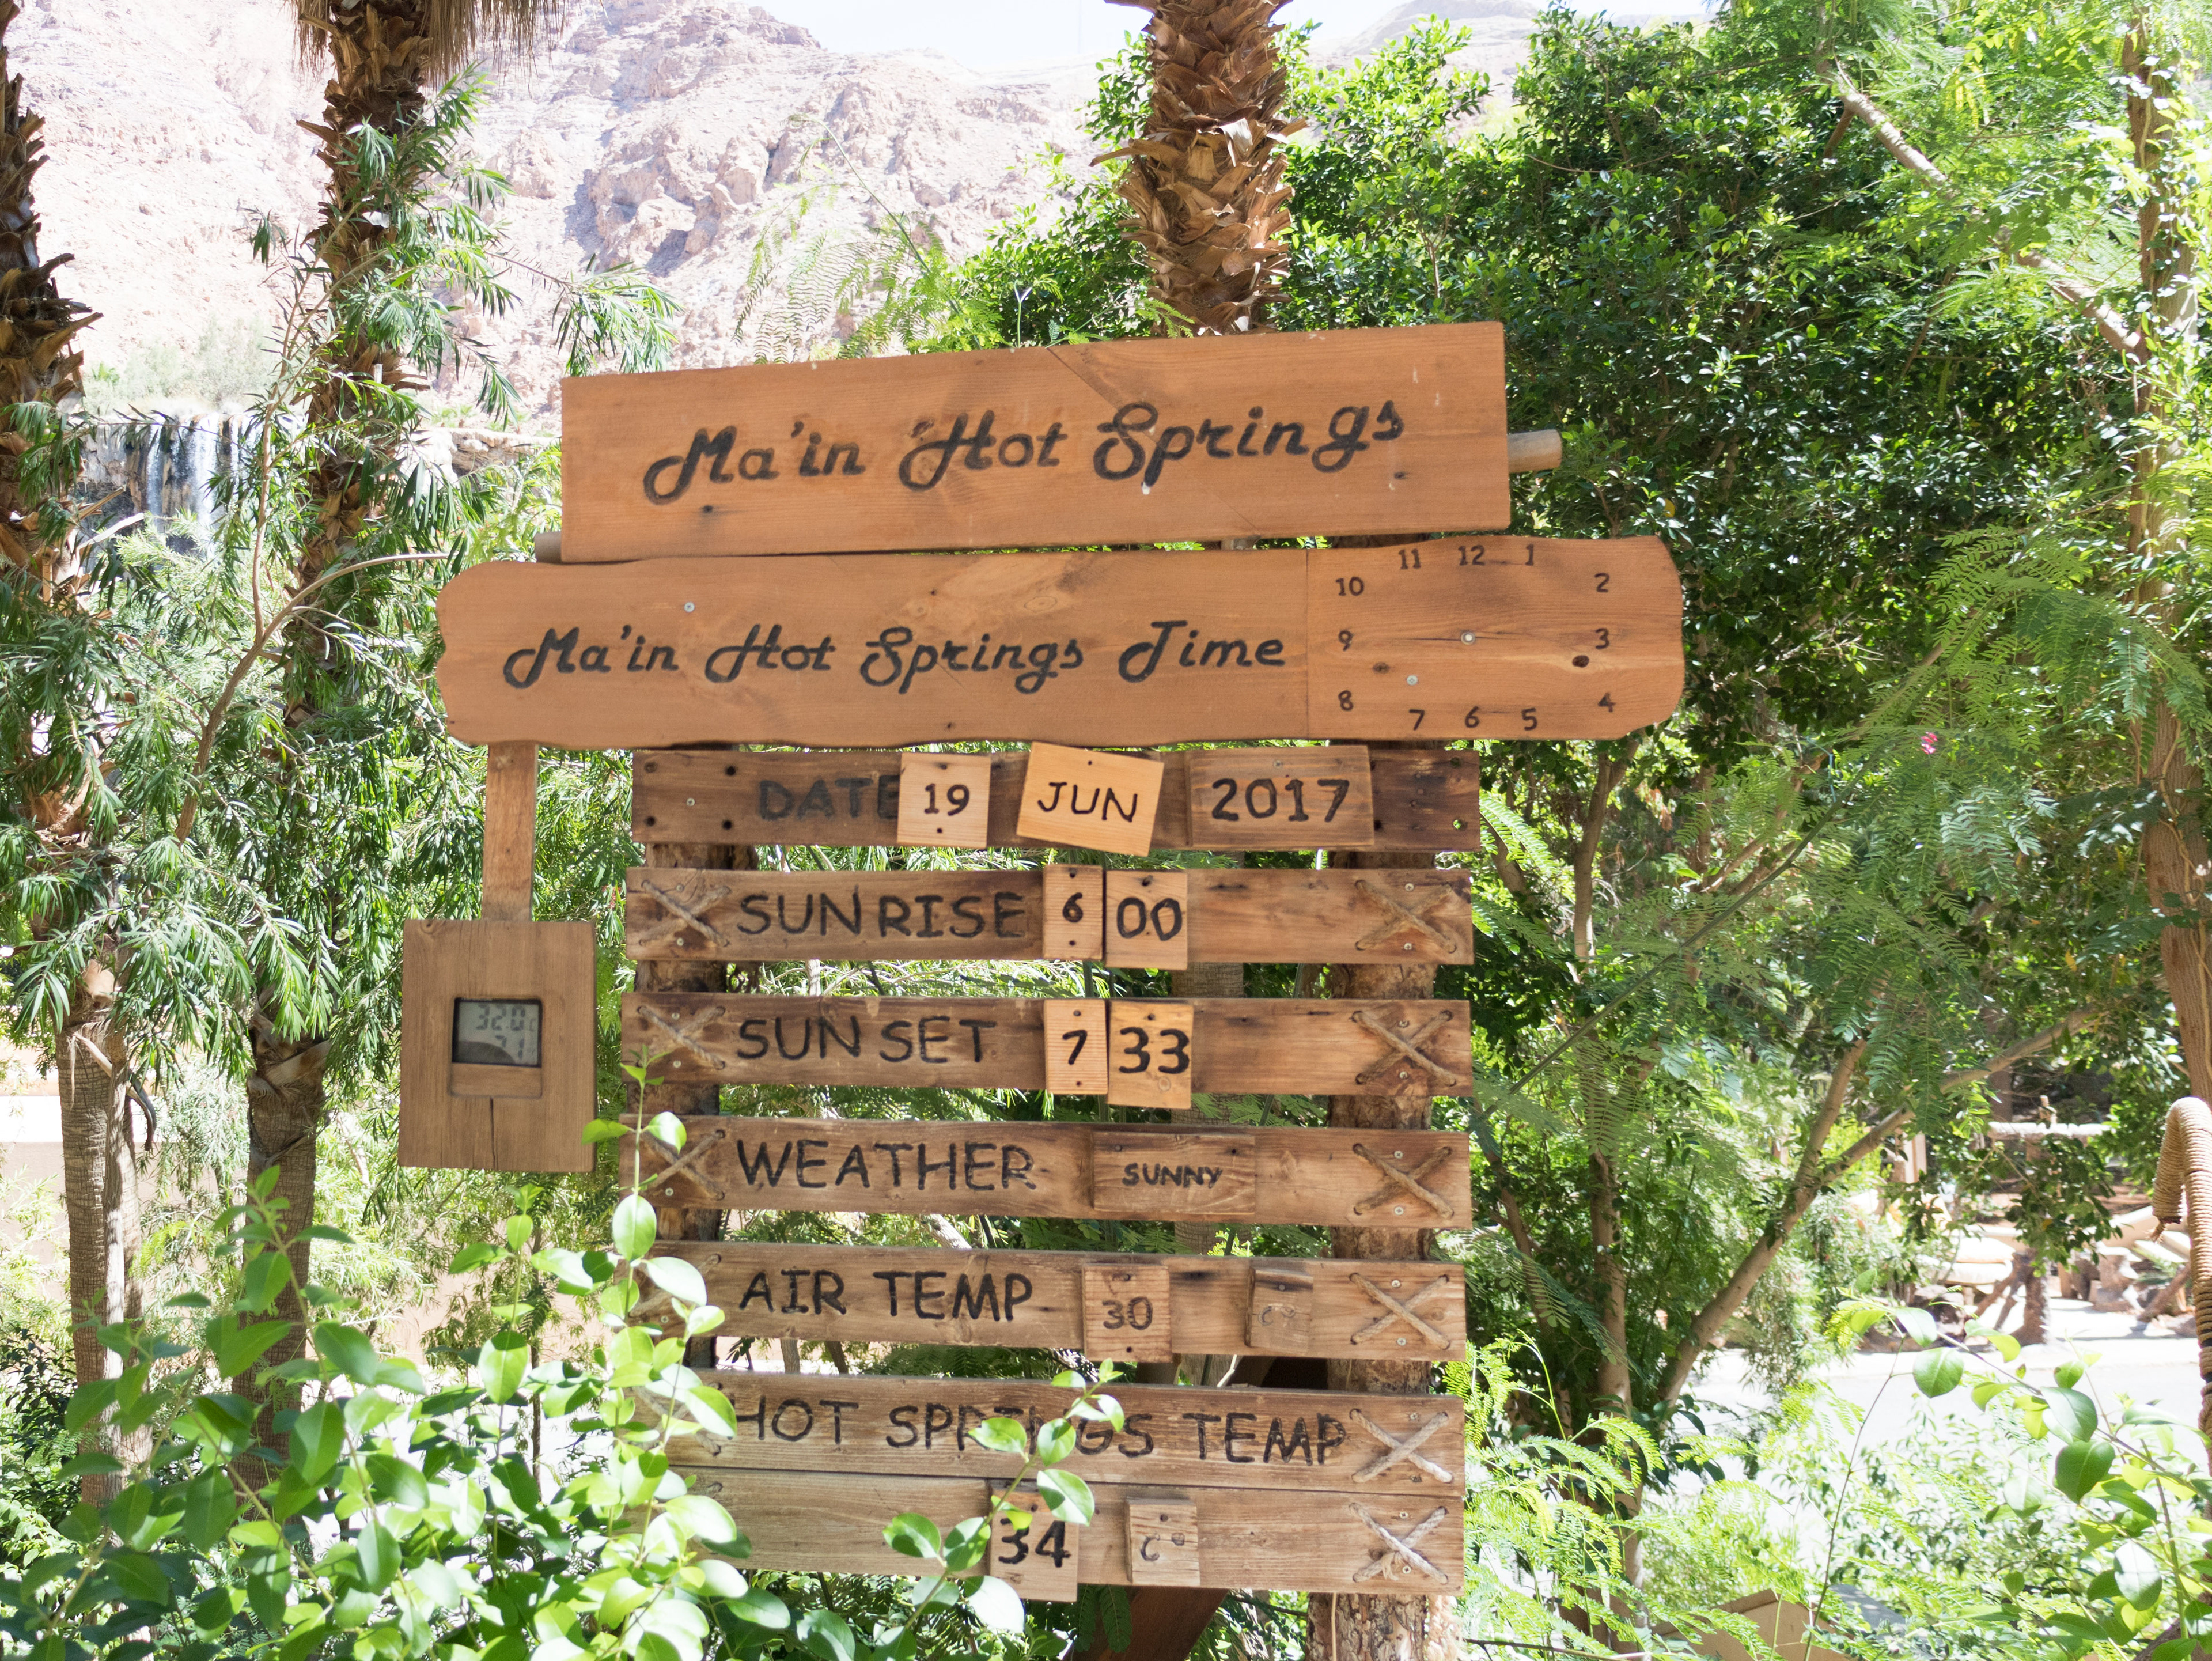 Ma'in Hot Springs
Ma'in Hot Springs Time
11 12 1
10 2
9 3
8 4
7 6 5
DATE 19 JUN 2017
SUNRISE 6 00
SUNSET 7 33
32.0
WEATHER SUNNY
AIR TEMP 30 C°
HOT SPRINGS TEMP
34 C°